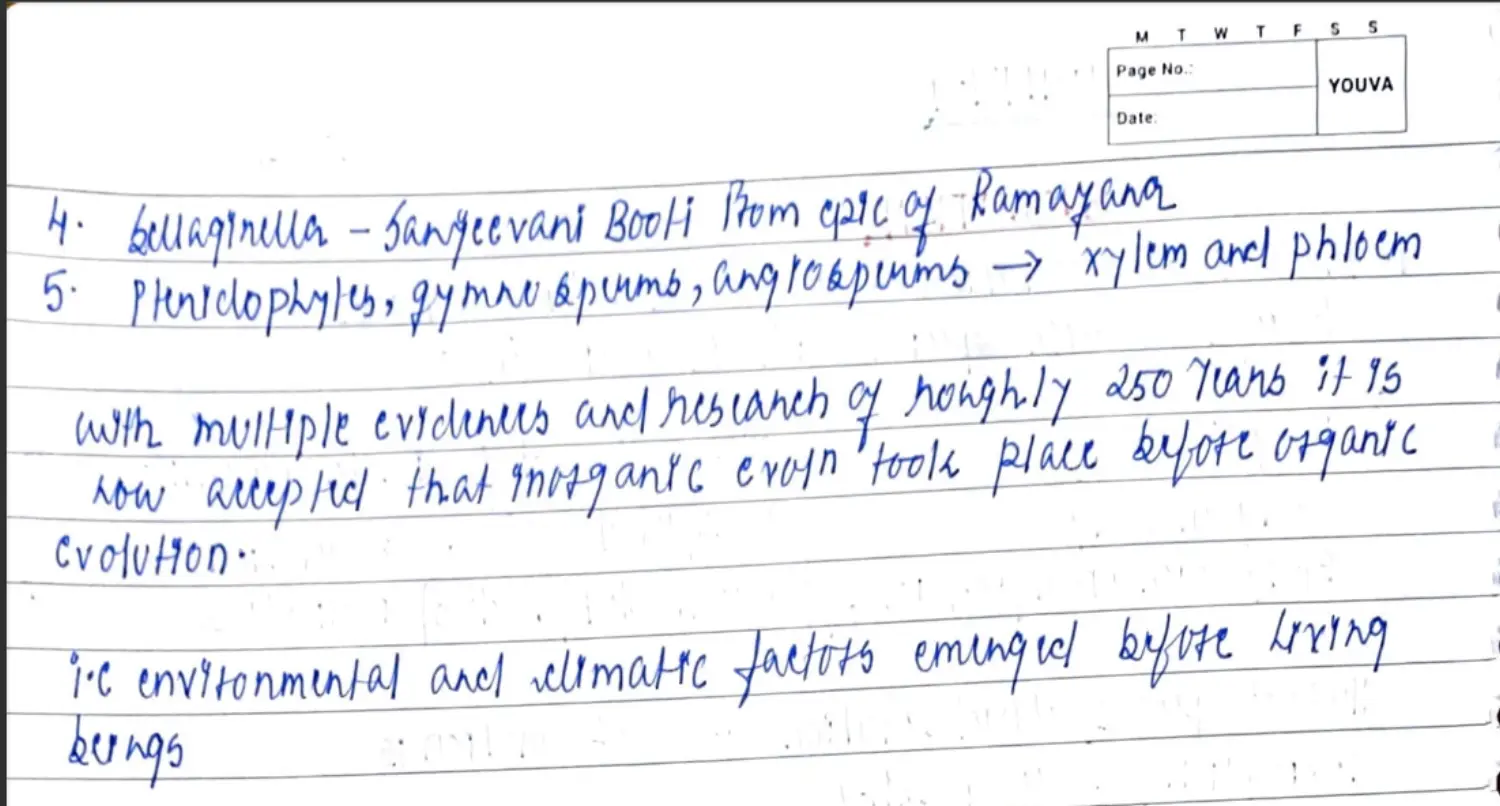 M T W T F S S
Page No.:
YOUVA
Date:
4. Sellaginella - Sanjeevani Booti from epic of Ramayana
5. Pteridophytes, gymnosperms, angiosperms → xylem and phloem
with multiple evidences and research of roughly 250 years it is
now accepted that inorganic evoln took place before organic
evolution.
i.e environmental and climatic factors emerged before living
beings